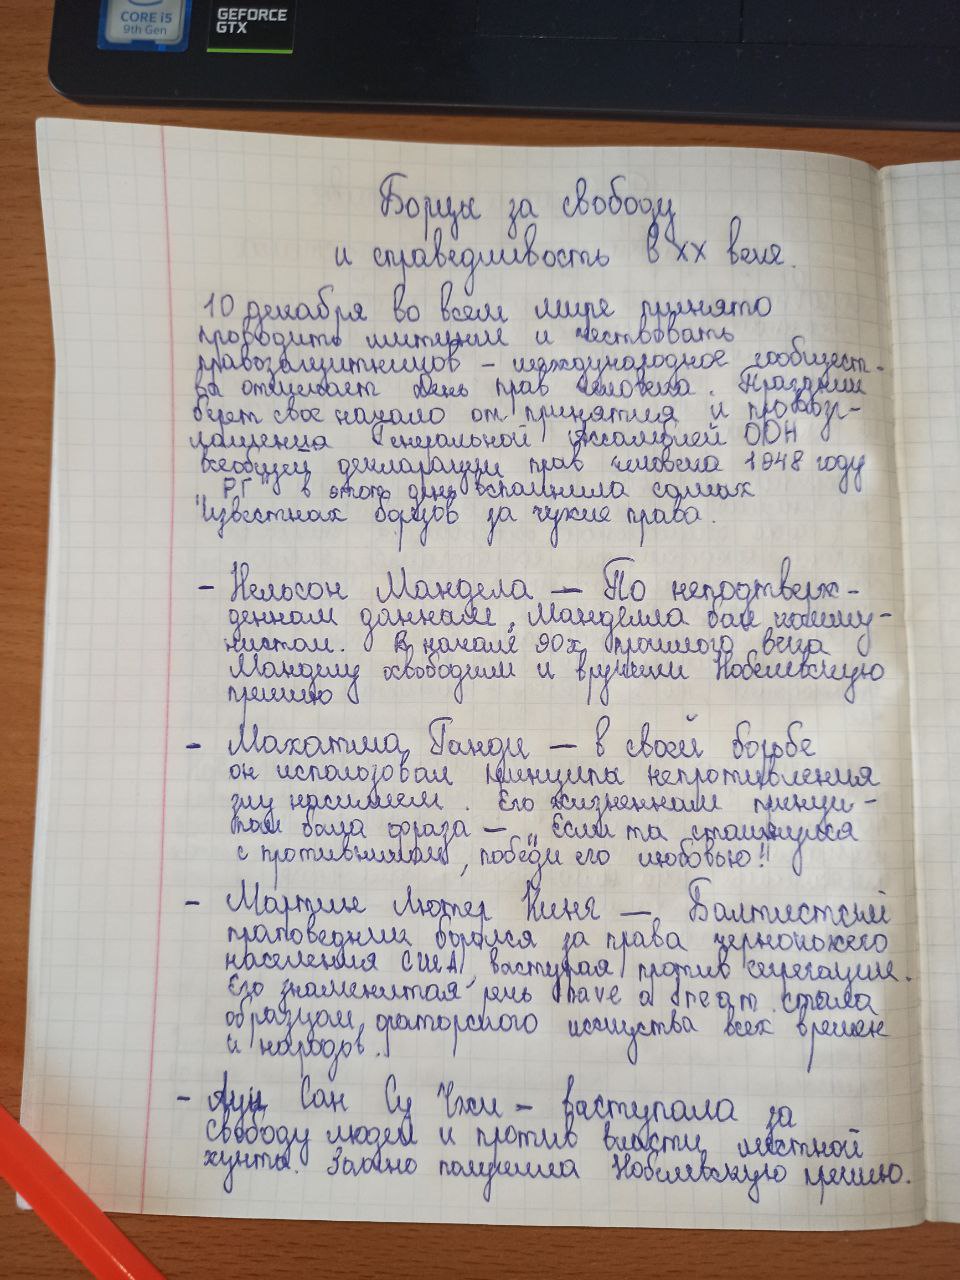 CORE i5
9th Gen
GEFORCE
GTX
Борцы за свободу
и справедливость в XX веке.
10 декабря во всем мире принято
проводить митинги и чествовать
правозащитников – международное сообщест-
ва отмечает День прав человека. Праздник
берет свое начало от принятия и провозг-
лашения Генеральной Ассамблеей ООН
Всеобщей декларации прав человека 1948 году
"РГ" в этот день вспомнила самых
известных борцов за чужие права.
- Нельсон Мандела — По неподтверж-
денным данным, Манделла был комму-
нистом. В начале 90х прошлого века
Манделу освободили и вручили Нобелевскую
премию
- Махатма Ганди — в своей борьбе
он использовал принципы непротивления
злу насилием. Его жизненным принци-
пом была фраза — „Если ты столкнулся
с противником, победи его любовью!"
- Мартин Лютер Кинг — Баптистский
проповедник боролся за права чернокожего
населения США, выступая против сегрегации.
Его знаменитая речь I have a dream стала
образцом ораторского искусства всех времен
и народов.
- Аун Сан Су Чжи – выступала за
свободу людей и против власти местной
хунты. Заочно получила Нобелевскую премию.